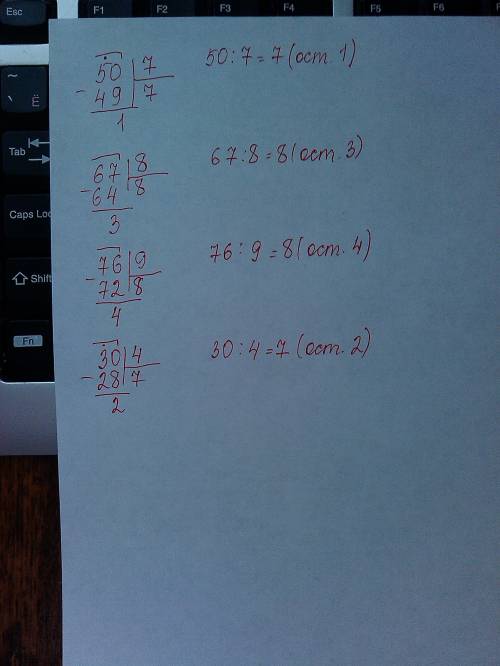 Esc F1 F2 F3 F4 F5 F6
~
` Ё
Tab
Caps Loc
Shift
Fn
50 7 50:7=7(ост. 1)
- 49 7
1
67 8 67:8=8(ост. 3)
- 64 8
3
76 9 76:9=8(ост. 4)
- 72 8
4
30 4 30:4=7(ост. 2)
- 28 7
2